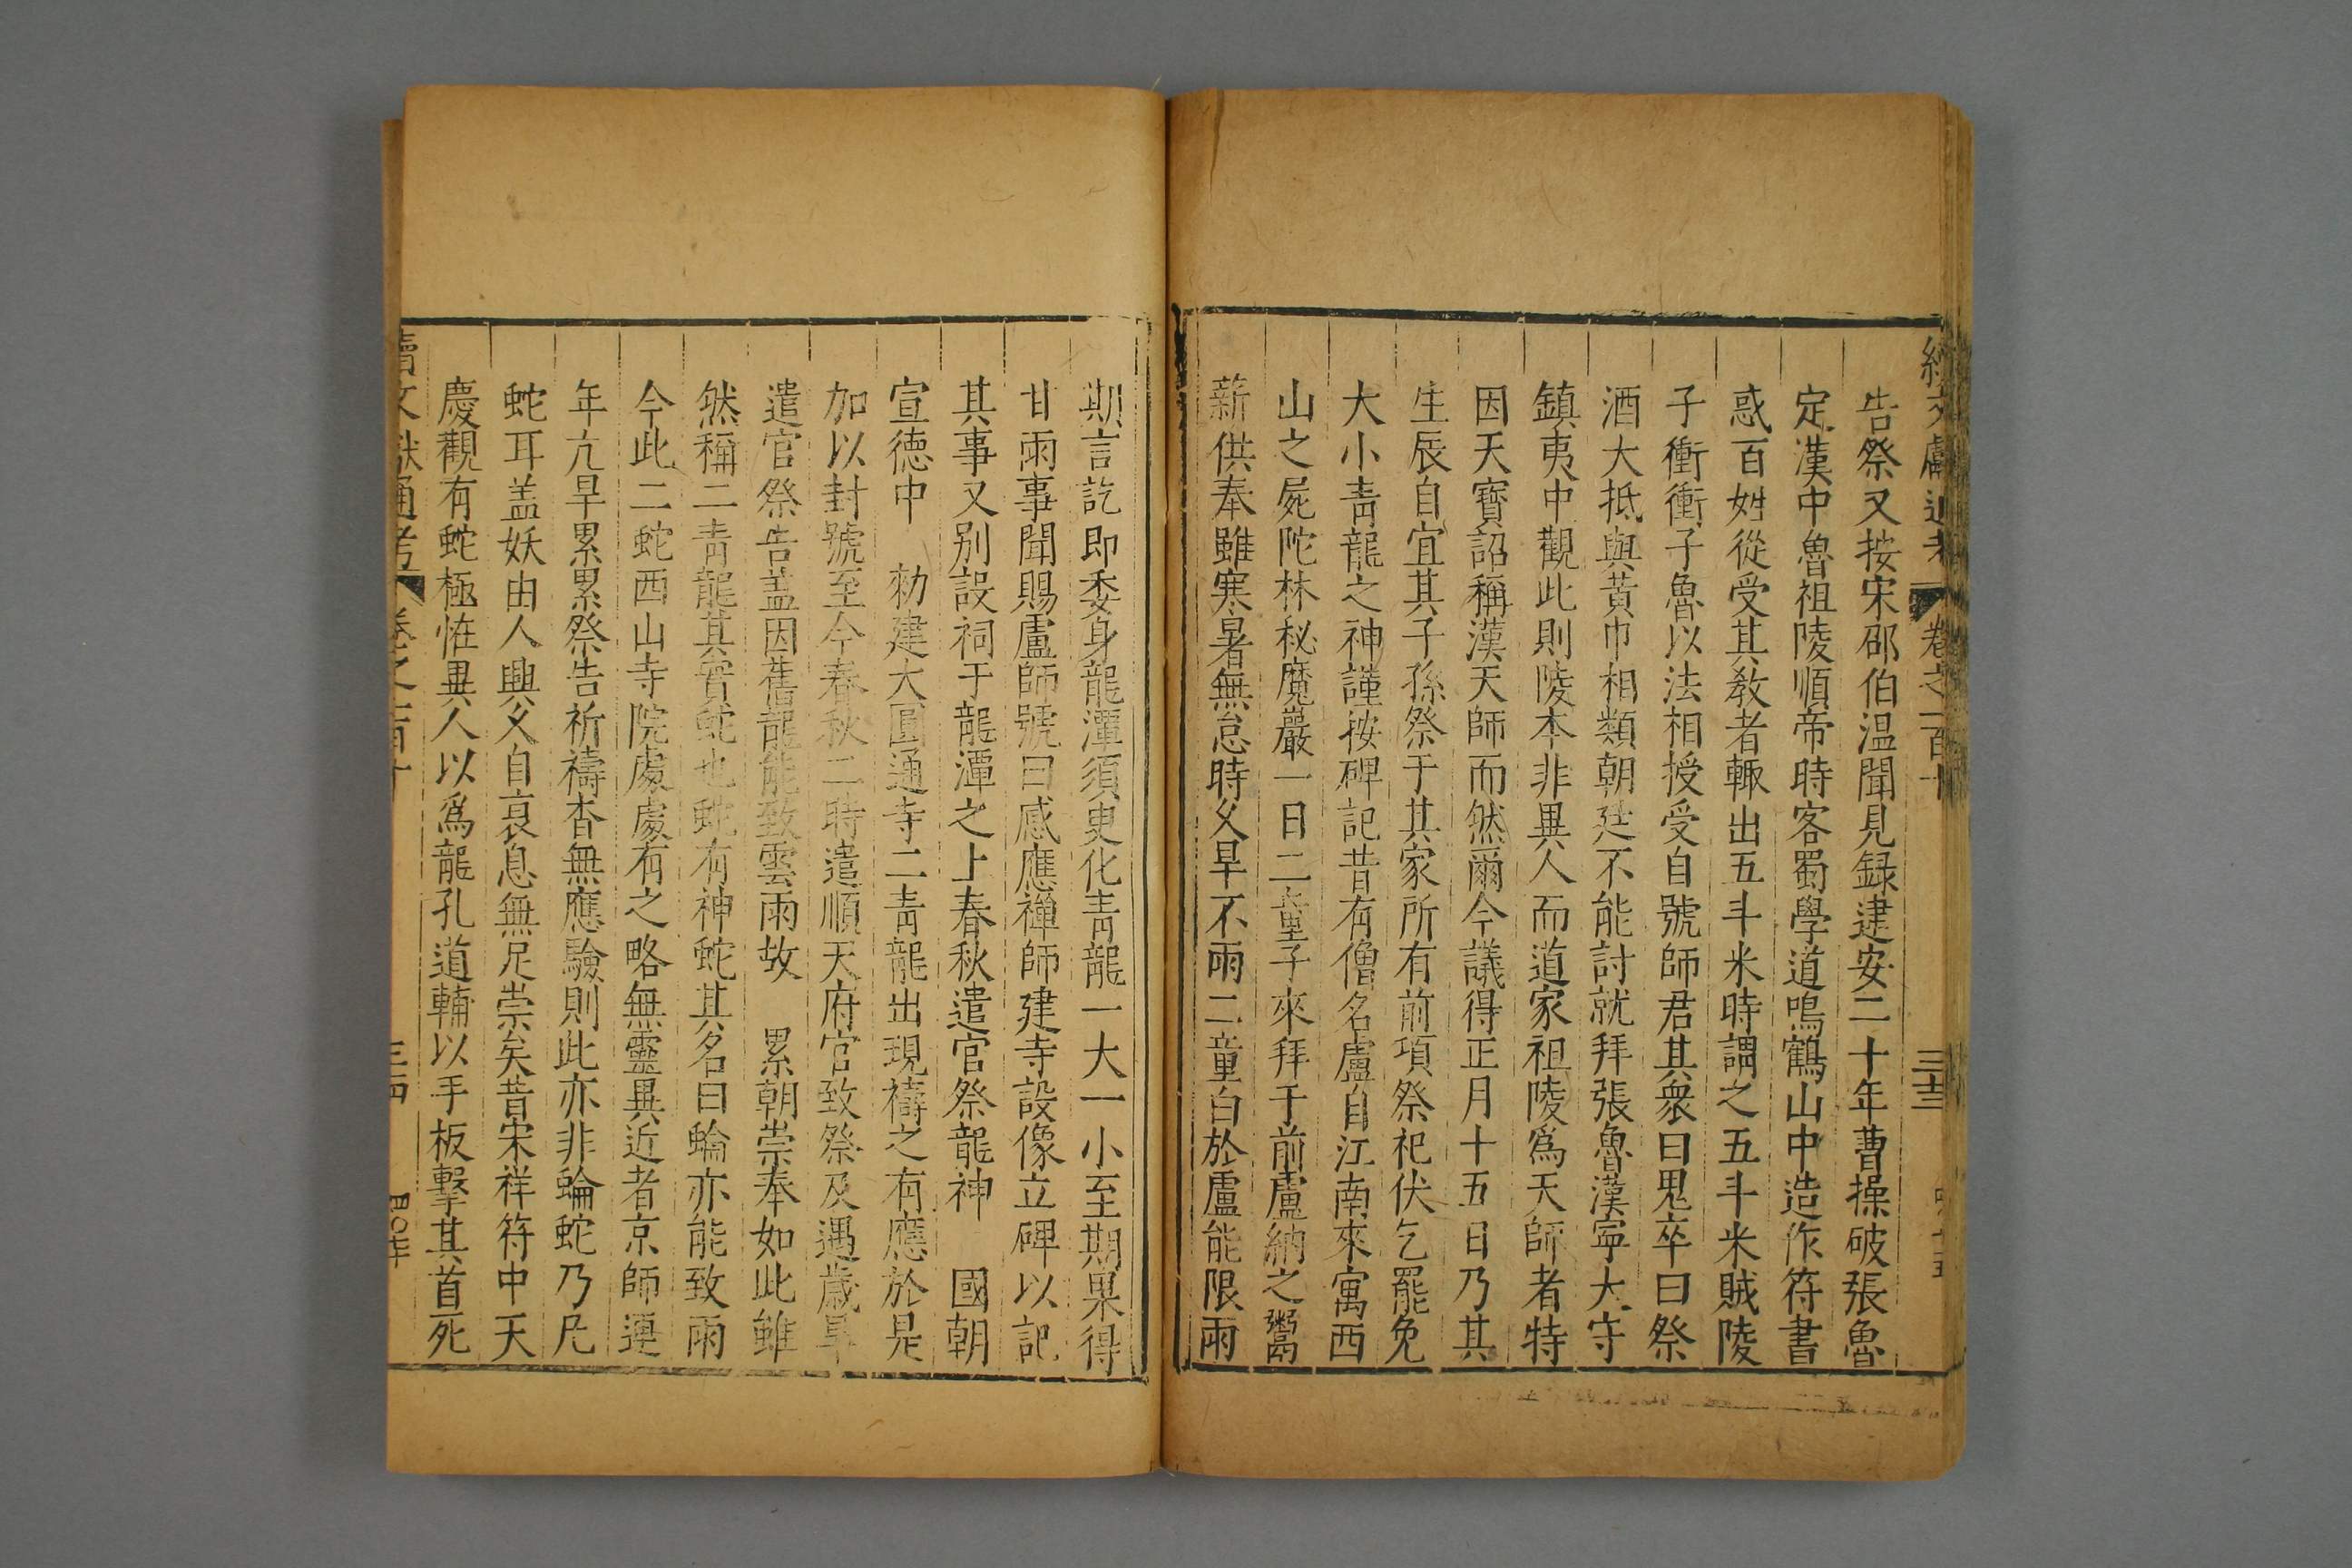 卷之一百十
告祭又按宋邵伯温聞見録建安二十年曹操破張魯
定漢中魯祖陵順帝時客蜀學道鳴鶴山中造作符書
惑百姓從受其教者輙出五斗米時謂之五斗米賊陵
子衝衝子魯以法相授受自號師君其衆曰鬼卒曰祭
酒大抵與黄巾相類朝廷不能討就拜張魯漢寧大守
鎮夷中觀此則陵本非異人而道家祖陵爲天師者特
因天寳詔稱漢天師而然爾今議得正月十五日乃其
生辰自宜其子孫祭于其家所有前項祭祀伏乞罷免
大小青龍之神謹按碑記昔有僧名盧自江南來寓西
山之屍陀林秘魔巖一日二童子來拜于前盧納之鬻
薪供奉雖寒暑無怠時久旱不雨二童白於盧能限雨
期言訖即委身龍潭須臾化青龍一大一小至期果得
甘雨事聞賜盧師號曰感應禪師建寺設像立碑以記
其事又别設祠于龍潭之上春秋遣官祭龍神 國朝
宣德中 勑建大圓通寺二青龍出現禱之有應於是
加以封號至今春秋二時遣順天府官致祭及遇歲旱
遣官祭告盖因舊龍能致雲雨故 累朝崇奉如此雖
然稱二青龍其實蛇也蛇有神蛇其名曰蜦亦能致雨
今此二蛇西山寺院處處有之略無靈異近者京師連
年亢旱累累祭告祈禱杳無應驗則此亦非蜦蛇乃凡
蛇耳盖妖由人興久自衰息無足崇矣昔宋祥符中天
慶觀有蛇極恠異人以爲龍孔道輔以手板擊其首死
續文獻通考 卷之一百十 三十四